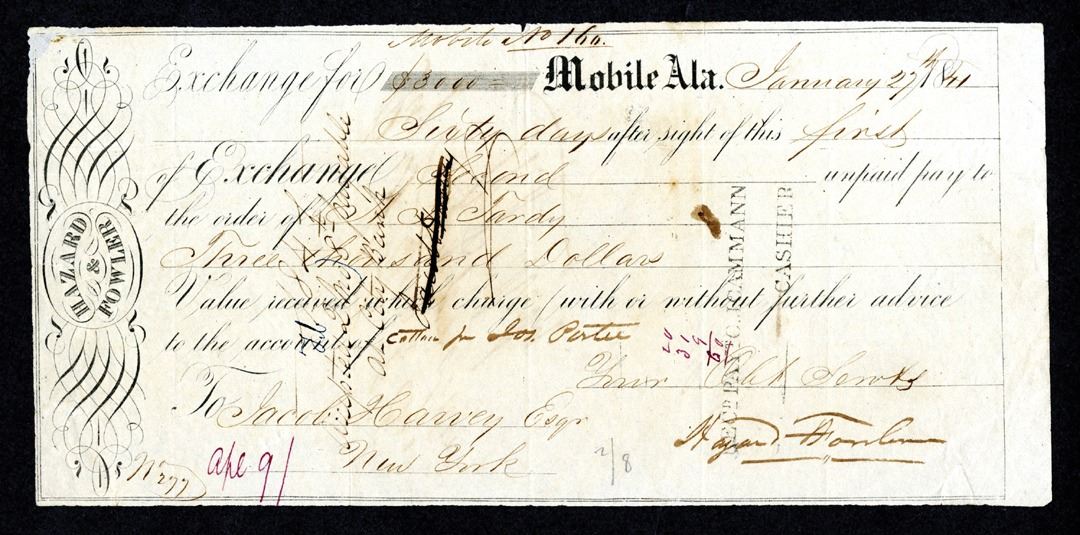 Mobile No 160.
Exchange for $3000 Mobile Ala. January 27th 1841
Sixty days after sight of this first
of Exchange Second unpaid pay to
the order of Tardy
Three thousand Dollars
Value received which charge (with or without further advice
to the account of cotton for Jos. Porter
Your Obt Servts
To Jacob Harvey Esqr
Hazard & Fowler
New York
No 277
ape 9/
2/8
20
31
9
60
HAZARD
&
FOWLER
CASHIER